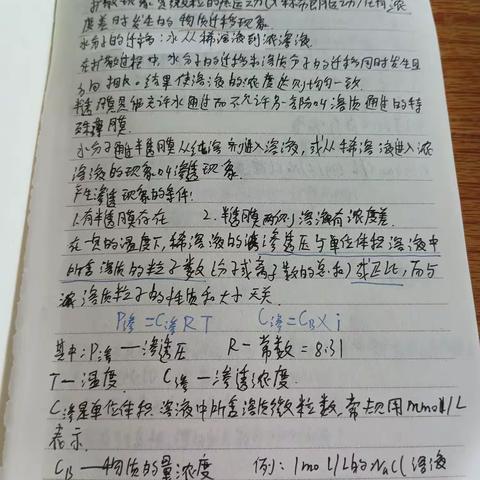 扩散现象是微粒的热运动(又称布朗运动)在有浓
度差时发生的物质迁移现象.
水分子的迁移:水从稀溶液到浓溶液.
在扩散过程中,水分子的迁移与溶质分子的迁移同时发生且
方向相反。结果使溶液的浓度达到均匀一致.
半透膜是仅允许水通过而不允许另一旁的溶质通过的特
殊薄膜.
水分子通过半透膜从纯溶剂进入溶液,或从稀溶液进入浓
溶液的现象叫渗透现象.
产生渗透现象的条件:
1.有半透膜存在 2.半透膜两侧溶液有浓度差.
在一定的温度下,稀溶液的渗透压与单位体积溶液中
所含溶质的粒子数(分子或离子数的总和)成正比,而与
溶质粒子的性质和大小无关.
P渗=C渗RT C渗=CB×i
其中:P渗—渗透压 R-常数=8.31
T-温度. C渗-渗透浓度.
C渗是单位体积溶液中所含溶质微粒数.常规用mmol/L
表示.
CB—物质的量浓度 例:1mol/L的NaCl溶液